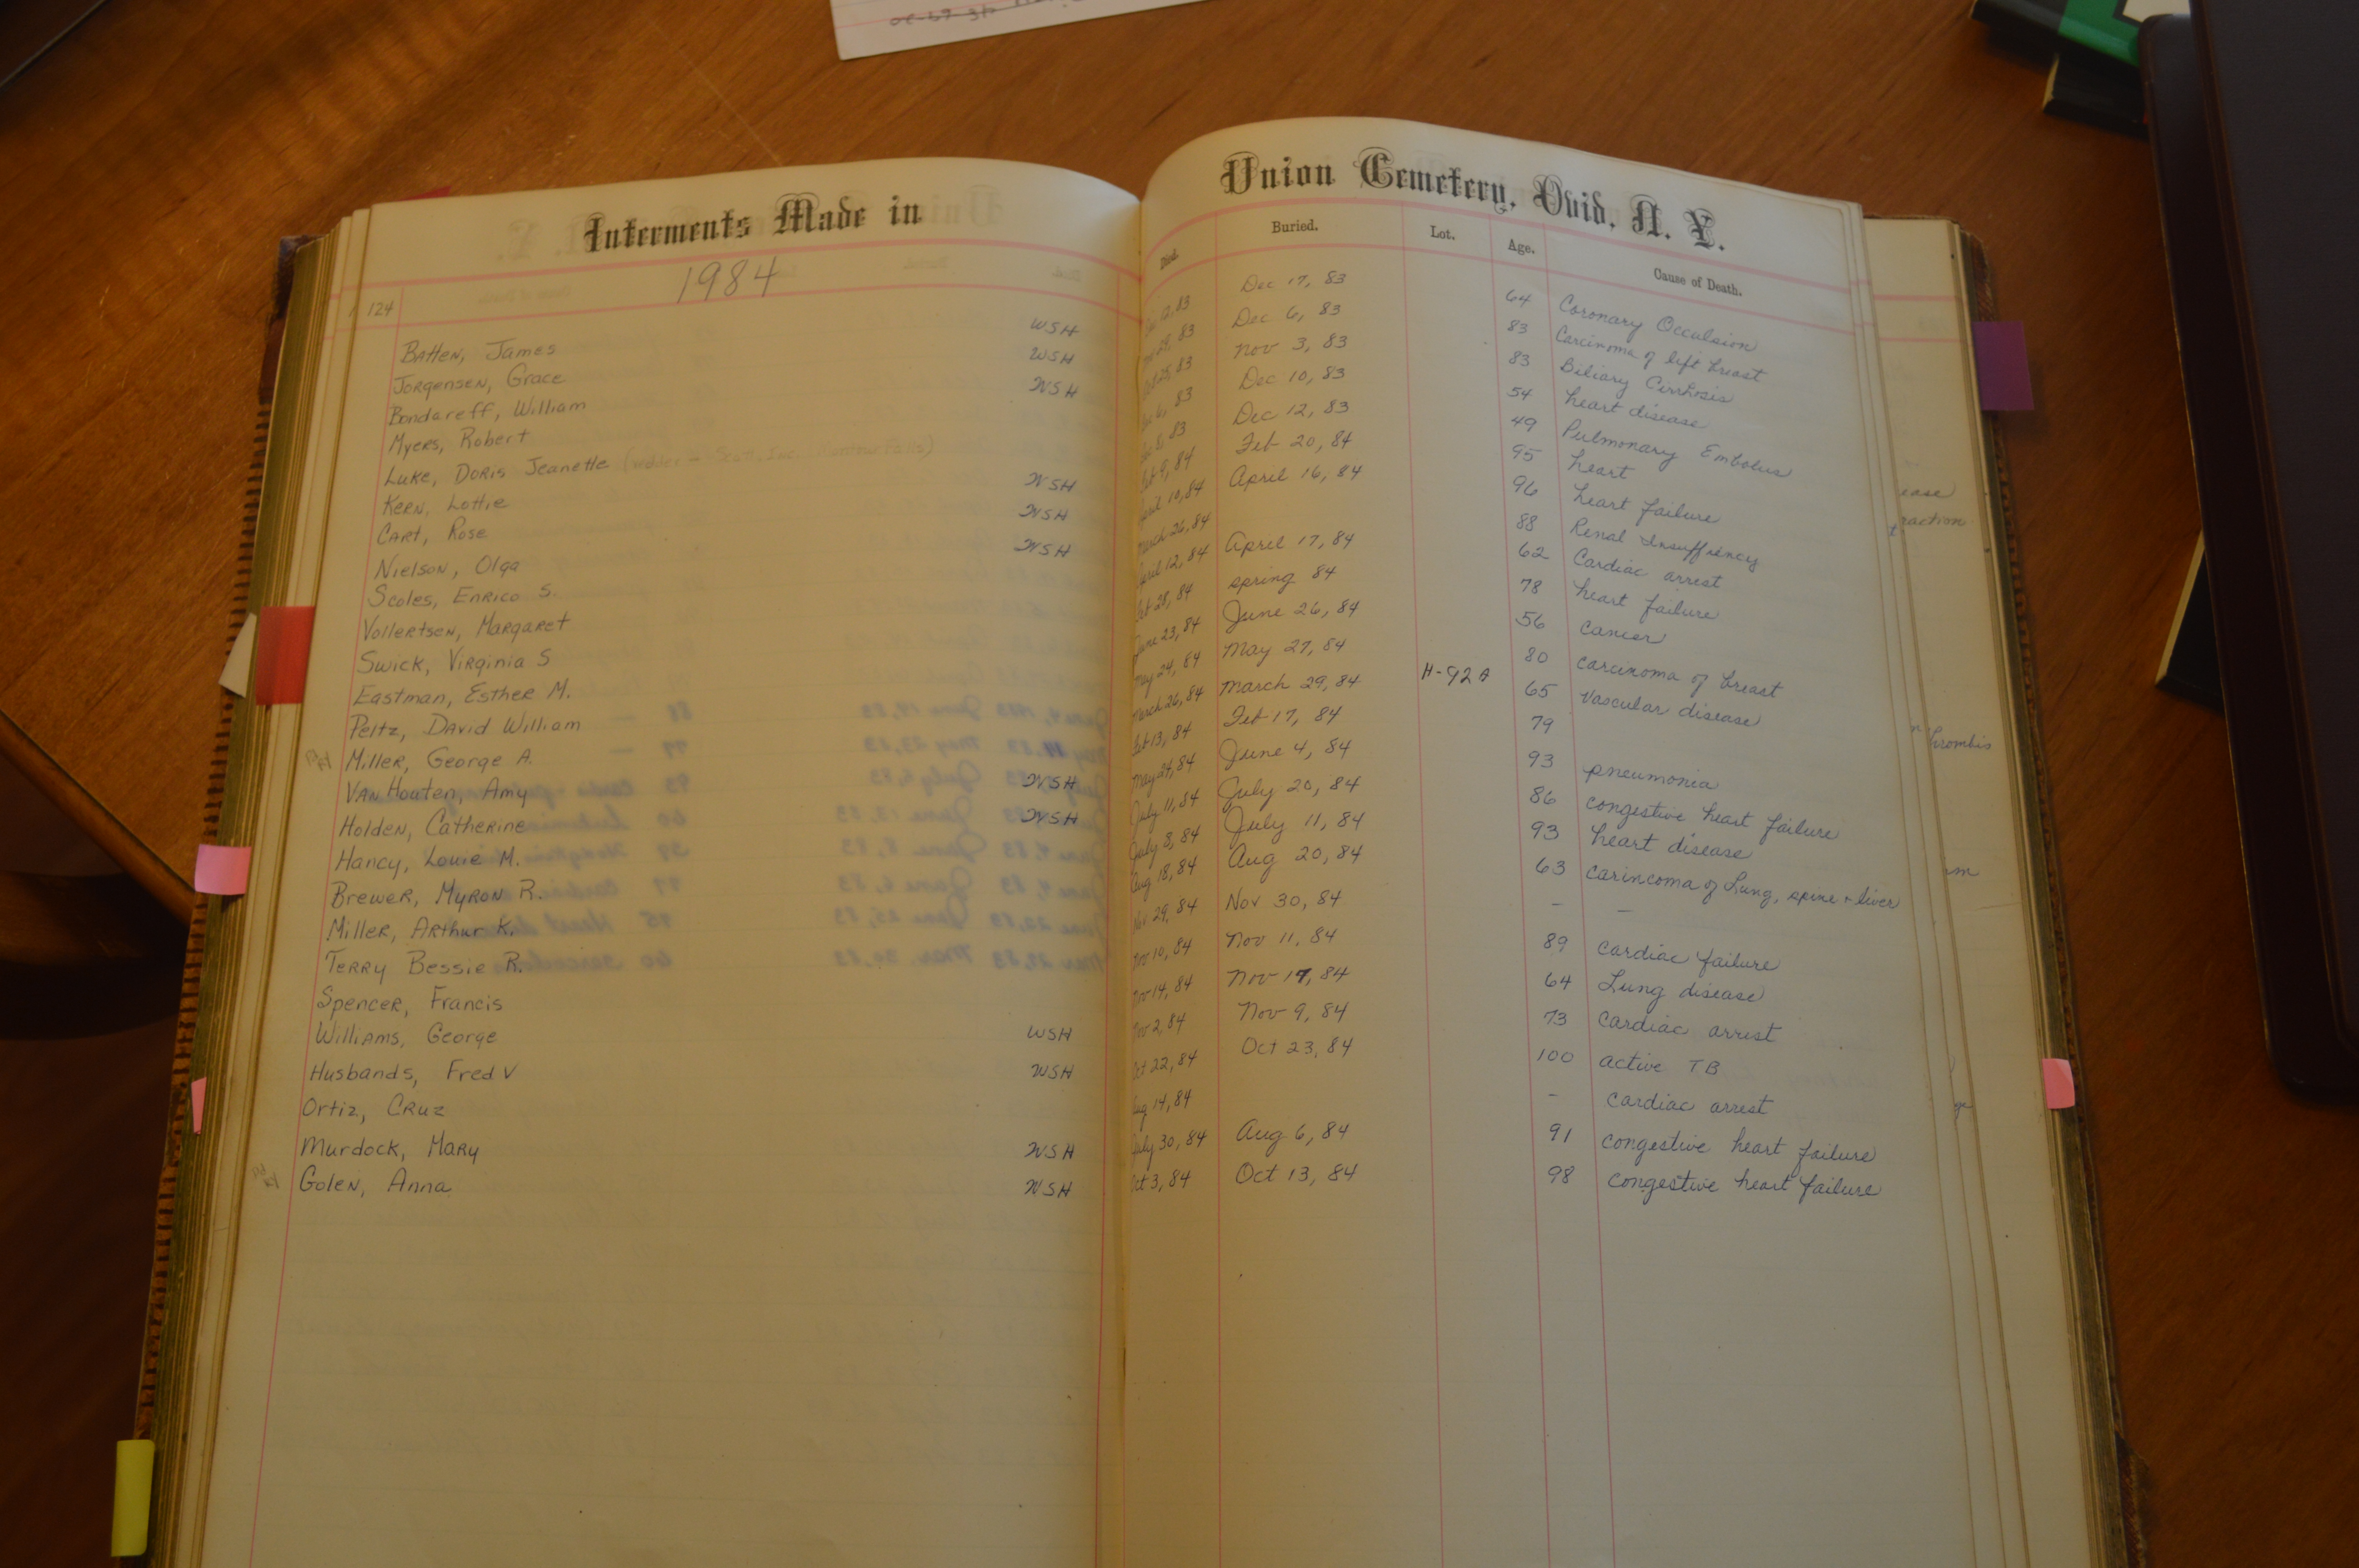 Interments Made in
Union Cemetery, Ovid, N. Y.
124 1984
Died. Buried. Lot. Age. Cause of Death.
Batten, James WSH 12, 83 Dec 17, 83 64 Coronary Occulsion
Jorgensen, Grace WSH 28, 83 Dec 6, 83 83 Carcinoma of left breast
Bondareff, William WSH Oct 28, 83 Nov 3, 83 83 Biliary Cirrhosis
Myers, Robert Dec 6, 83 Dec 10, 83 54 heart disease
Luke, Doris Jeanette Dec 8, 83 Dec 12, 83 49 Pulmonary Embolus
Kern, Lottie WSH Feb 9, 84 Feb 20, 84 95 heart
Cart, Rose WSH April 10, 84 April 16, 84 96 heart failure
Nielson, Olga WSH March 26, 84 88 Renal Insuffiency
Scoles, Enrico S. April 12, 84 April 17, 84 62 Cardiac arrest
Vollertsen, Margaret Feb 28, 84 spring 84 78 heart failure
Swick, Virginia S June 23, 84 June 26, 84 56 cancer
Eastman, Esther M. May 24, 84 May 27, 84 80 carcinoma of breast
Peltz, David William March 26, 84 March 29, 84 H-92A 65 Vascular disease
Miller, George A. Feb 13, 84 Feb 17, 84 79
VanHouten, Amy WSH May 24, 84 June 4, 84 93 pneumonia
Holden, Catherine WSH July 11, 84 July 20, 84 86 congestive heart failure
Hancy, Louie M. July 8, 84 July 11, 84 93 heart disease
Brewer, Myron R. Aug 18, 84 Aug 20, 84 63 carincoma of Lung, spine + liver
Miller, Arthur K. Nov 29, 84 Nov 30, 84 - -
Terry Bessie R. Nov 10, 84 Nov 11, 84 89 cardiac failure
Spencer, Francis Nov 14, 84 Nov 17, 84 64 Lung disease
Williams, George WSH Nov 2, 84 Nov 9, 84 73 cardiac arrest
Husbands, Fred V WSH Oct 22, 84 Oct 23, 84 100 active TB
Ortiz, Cruz Aug 14, 84 - cardiac arrest
Murdock, Mary WSH July 30, 84 Aug 6, 84 91 congestive heart failure
Golen, Anna WSH Oct 3, 84 Oct 13, 84 98 congestive heart failure